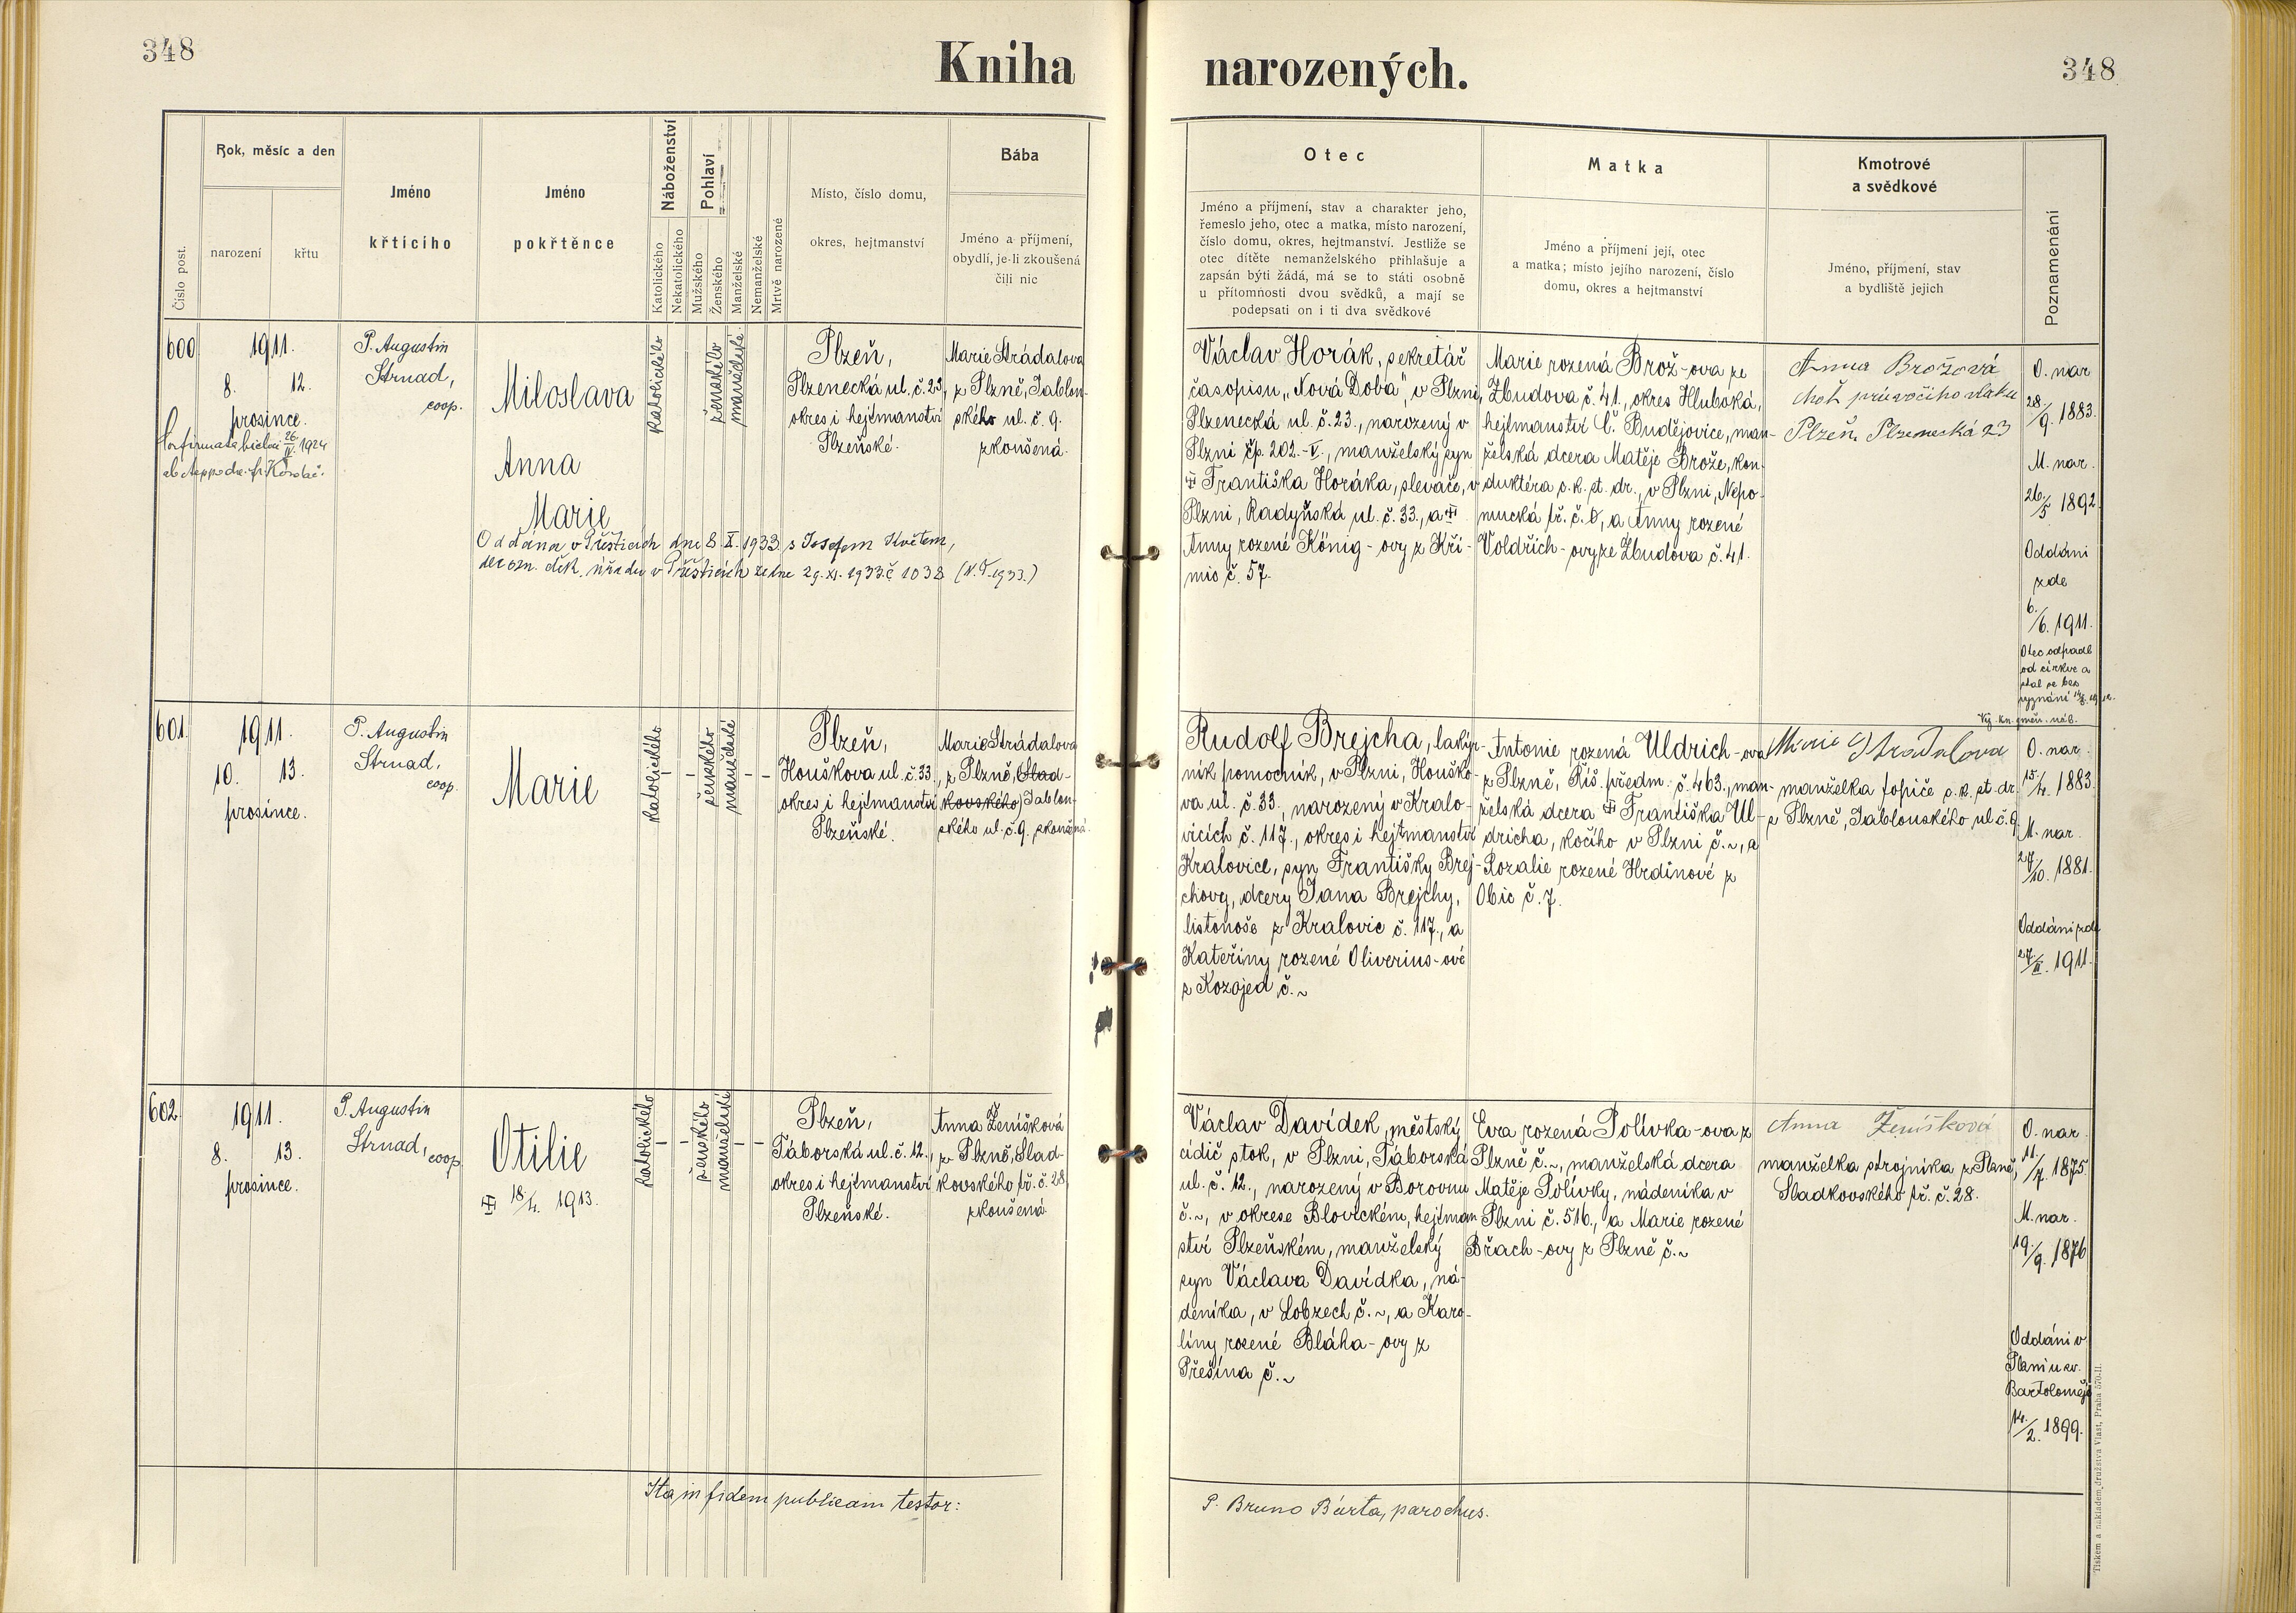 348
Kniha narozených.
348
Číslo post.
Rok, měsíc a den
narození
křtu
Jméno
křtícího
Jméno
pokřtěnce
Náboženství
Katolického
Nekatolického
Pohlaví
Mužského
Ženského
Manželské
Nemanželské
Mrtvě narozené
Místo, číslo domu,
okres, hejtmanství
Bába
Jméno a příjmení,
obydlí, je-li zkoušená
čili nic
Otec
Jméno a příjmení, stav a charakter jeho,
řemeslo jeho, otec a matka, místo narození,
číslo domu, okres, hejtmanství. Jestliže se
otec dítěte nemanželského přihlašuje a
zapsán býti žádá, má se to státi osobně
u přítomnosti dvou svědků, a mají se
podepsati on i ti dva svědkové
Matka
Jméno a příjmení její, otec
a matka; místo jejího narození, číslo
domu, okres a hejtmanství
Kmotrové
a svědkové
Jméno, příjmení, stav
a bydliště jejich
Poznamenání
600
1911.
8. 12.
prosince.
P. Augustin
Strnad,
coop.
Miloslava
Anna
Marie
Oddána v Přešticích dne 8. X. 1933 s Josefem Květem,
děk. úřadu v Přešticích ze dne 29. XI. 1933 č 1038
katolického
ženského
manželské
Plzeň,
Plzenecká ul. č. 23,
okres i hejtmanství
Plzeňské.
Marie Strádalova
z Plzně, Jablon-
ského ul. č. 9.
zkoušená.
Václav Horák, sekretář
časopisu „Nová Doba", v Plzni,
Plzenecká ul. č. 23., narozený v
Plzni čp. 202.-V., manželský syn
Františka Horáka, slevače, v
Plzni, Radyňská ul. č. 33., a
Anny rozené König-ovy z Kři-
mic č. 57.
Marie rozená Brož-ova ze
Zbudova č. 41., okres Hluboká,
hejtmanství Č. Budějovice, man-
želská dcera Matěje Brože, kon-
duktéra c. k. st. dr., v Plzni, Nepo-
mucká tř. č. 6, a Anny rozené
Voldřich-ovy ze Zbudova č. 41.
Anna Brožová
choť průvočího vlaku
Plzeň, Plzenecká 23
O. nar.
28./9. 1883.
M. nar.
26/5 1892
Oddáni
zde
6./6. 1911.
Otec odpadl
od církve a
stal se bez
vyznání
601
1911.
10. 13.
prosince.
P. Augustin
Strnad,
coop.
Marie
katolického
ženského
manželské
Plzeň,
Houškova ul. č. 33.,
okres i hejtmanství
Plzeňské.
Marie Strádalova
z Plzně, (Slad-
kovského) Jablon-
ského ul. č. 9. zkoušená.
Rudolf Brejcha, lakýr-
ník pomocník, v Plzni, Houško-
va ul. č. 33., narozený v Kralo-
vicích č. 117., okres i hejtmanství
Kralovice, syn Františky Brej-
chovy, dcery Jana Brejchy,
listonoše z Kralovic č. 117., a
Kateřiny rozené Oliverius-ové
z Kozojed č. ~
Antonie rozená Uldrich-ova
z Plzně, Říš. předm. č. 463., man-
želská dcera Františka Ul-
dricha, kočího v Plzni č. ~, a
Rozalie rozené Hrdinové z
Obic č. 7.
Marie Stradalova
manželka topiče c. k. st. dr.
z Plzně, Jablonského ul. č. 9.
O. nar.
15./4. 1883.
M. nar.
27/10. 1881.
Oddáni zde
27/II. 1911.
602
1911.
8. 13.
prosince.
P. Augustin
Strnad, coop.
Otilie
18/4. 1913.
katolického
ženského
manželské
Plzeň,
Táborská ul. č. 12.,
okres i hejtmanství
Plzeňské.
Anna Ženíšková
z Plzně, Slad-
kovského tř. č. 28
zkoušená.
Václav Davídek, městský
cídič stok, v Plzni, Táborská
ul. č. 12., narozený v Borovnu
č. ~, v okrese Blovickém, hejtman-
ství Plzeňském, manželský
syn Václava Davídka, ná-
deníka, v Lobzech č. ~, a Karo-
líny rozené Bláha-ovy z
Přešína č. ~
Eva rozená Polívka-ova z
Plzně č. ~, manželská dcera
Matěje Polívky, nádeníka v
Plzni č. 516., a Marie rozené
Břach-ovy z Plzně č. ~
Anna Ženíšková
manželka strojníka z Plzně,
Sladkovského tř. č. 28.
O. nar.
11./7. 1875
M. nar.
19./9. 1876
Oddáni v
Plzni u sv.
Bartoloměje
14./2. 1899.
Ita in fidem publicam testor:
P. Bruno Bárta, parochus.
Tiskem a nákladem družstva Vlast, Praha 570-II.